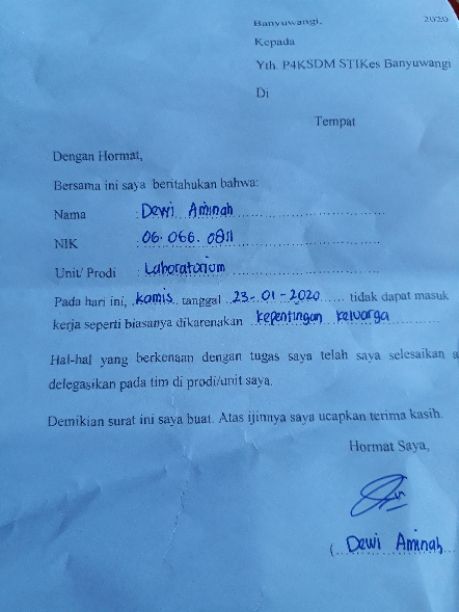 Banyuwangi, 2020
Kepada
Yth. P4KSDM STIKes Banyuwangi
Di
Tempat
Dengan Hormat,
Bersama ini saya beritahukan bahwa:
Nama : Dewi Aminah
NIK : 06.066.0811
Unit/ Prodi : Laboratorium
Pada hari ini, kamis tanggal 23-01-2020 tidak dapat masuk
kerja seperti biasanya dikarenakan kepentingan keluarga
Hal-hal yang berkenaan dengan tugas saya telah saya selesaikan a
delegasikan pada tim di prodi/unit saya.
Demikian surat ini saya buat. Atas ijinnya saya ucapkan terima kasih.
Hormat Saya,
( Dewi Aminah